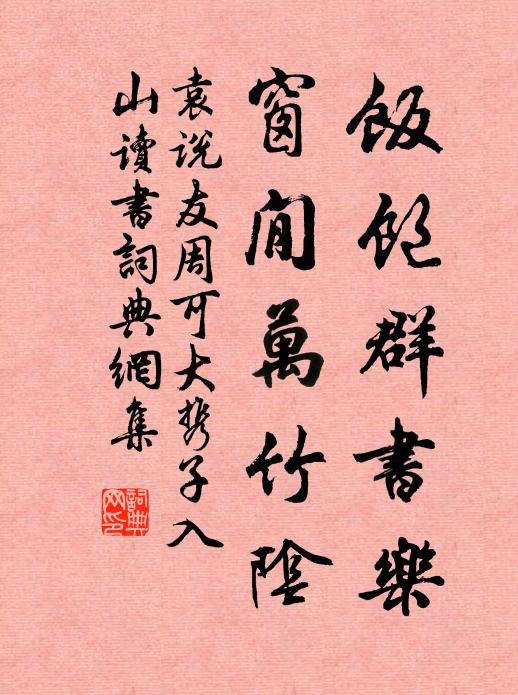 飯飽群書樂
窗間萬竹陰
袁説友周可大携子入
山讀書詞典網集
詞典網印